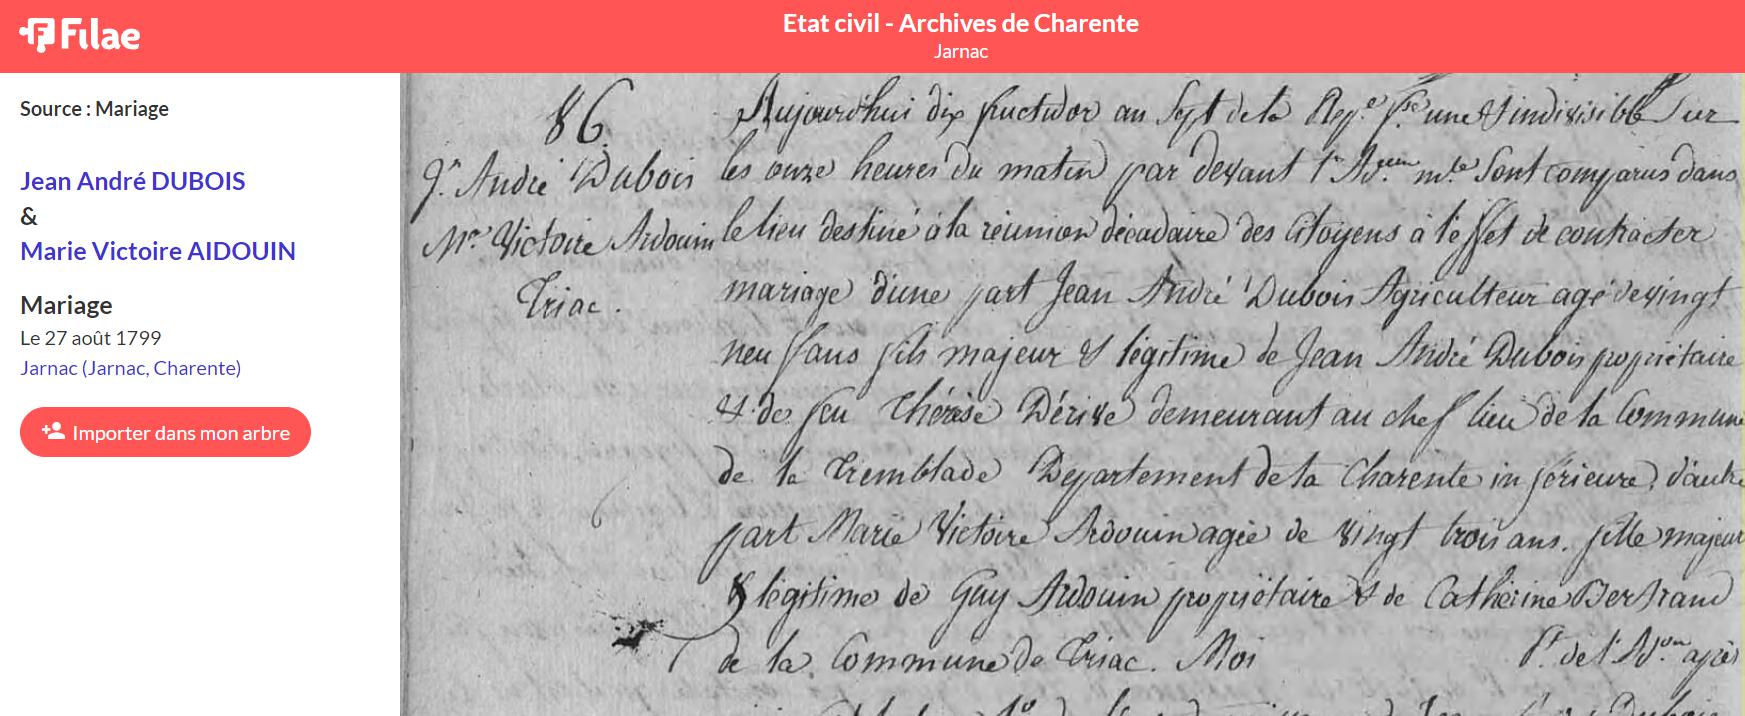 Filae
Etat civil - Archives de Charente
Jarnac
Source : Mariage
Jean André DUBOIS
&
Marie Victoire AIDOUIN
Mariage
Le 27 août 1799
Jarnac (Jarnac, Charente)
Importer dans mon arbre
86
Jn. André Dubois
Mie. Victoire Ardouin
Triac.
Aujourd'hui dix fructidor an Sept de la Rep.e fse une & indivisible Sur
les onze heures du matin par devant l'Ad.on m.le Sont comparus dans
le lieu destiné à la réunion décadaire des Citoyens à l'effet de contracter
mariage d'une part Jean André Dubois Agriculteur agé de vingt
neuf ans fils majeur & légitime de Jean André Dubois propriétaire
& de feu Thérèse Dérive demeurant au chef lieu de la Commune
de la Tremblade Departement de la Charente inférieure, d'autre
part Marie Victoire Ardouin agée de vingt trois ans. fille majeur
& légitime de Guy Ardouin propriétaire & de Catherine Bertrand
de la Commune de Triac. Moi Pt. de l'Ad.on après